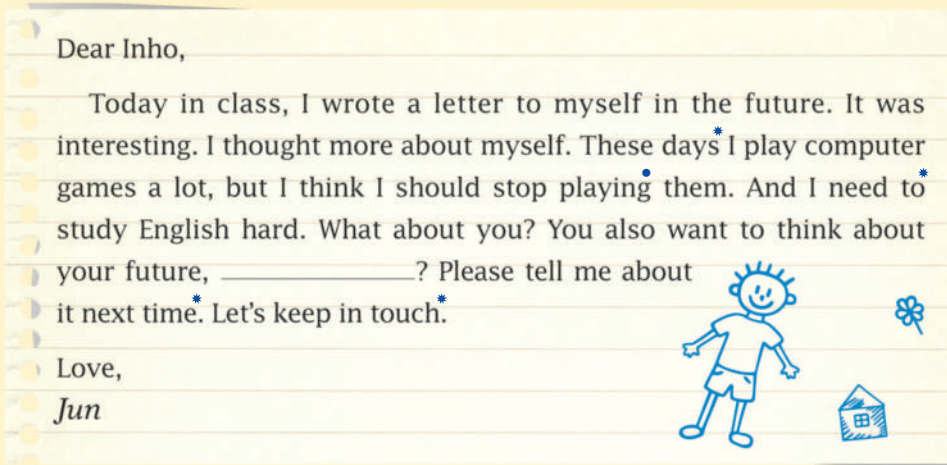 Dear Inho,
Today in class, I wrote a letter to myself in the future. It was
interesting. I thought more about myself. These days* I play computer
games a lot, but I think I should stop playing them. And I need to*
study English hard. What about you? You also want to think about
your future, ____________? Please tell me about
it next time*. Let's keep in touch*.
Love,
Jun